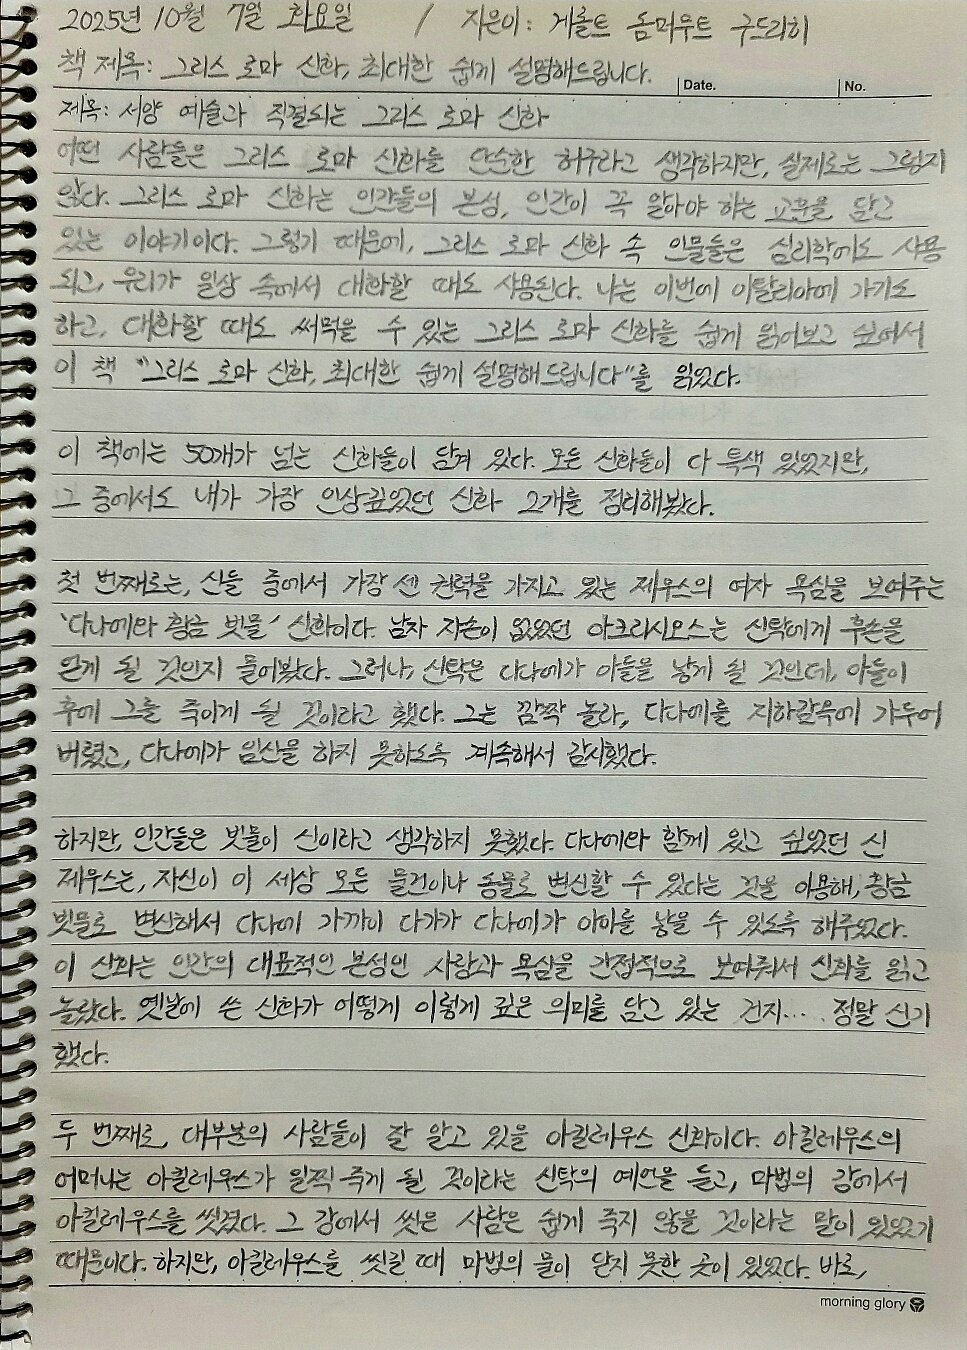 2025년 10월 7일 화요일 / 지은이: 게롤트 돔머무트 구드리히
책 제목: 그리스 로마 신화, 최대한 쉽게 설명해드립니다.
Date. No.
제목: 서양 예술과 직결되는 그리스 로마 신화
어떤 사람들은 그리스 로마 신화를 단순한 허구라고 생각하지만, 실제로는 그렇지
않다. 그리스 로마 신화는 인간들의 본성, 인간이 꼭 알아야 하는 교훈을 담고
있는 이야기이다. 그렇기 때문에, 그리스 로마 신화 속 인물들은 심리학에도 사용
되고, 우리가 일상 속에서 대화할 때도 사용된다. 나는 이번에 이탈리아에 가기도
하고, 대화할 때도 써먹을 수 있는 그리스 로마 신화를 쉽게 읽어보고 싶어서
이 책 "그리스 로마 신화, 최대한 쉽게 설명해드립니다"를 읽었다.
이 책에는 50개가 넘는 신화들이 담겨 있다. 모든 신화들이 다 특색 있었지만,
그 중에서도 내가 가장 인상깊었던 신화 2개를 정리해봤다.
첫 번째로는, 신들 중에서 가장 센 권력을 가지고 있는 제우스의 여자 욕심을 보여주는
'다나에와 황금 빗물' 신화이다. 남자 자손이 없었던 아크리시오스는 신탁에게 후손을
얻게 될 것인지 물어봤다. 그러나, 신탁은 다나에가 아들을 낳게 될 것인데, 아들이
후에 그를 죽이게 될 것이라고 했다. 그는 깜짝 놀라, 다나에를 지하감옥에 가두어
버렸고, 다나에가 임신을 하지 못하도록 계속해서 감시했다.
하지만, 인간들은 빗물이 신이라고 생각하지 못했다. 다나에와 함께 있고 싶었던 신
제우스는, 자신이 이 세상 모든 물건이나 동물로 변신할 수 있다는 것을 이용해, 황금
빗물로 변신해서 다나에 가까이 다가가 다나에가 아이를 낳을 수 있도록 해주었다.
이 신화는 인간의 대표적인 본성인 사랑과 욕심을 간접적으로 보여줘서 신화를 읽고
놀랐다. 옛날에 쓴 신화가 어떻게 이렇게 깊은 의미를 담고 있는 건지... 정말 신기
했다.
두 번째로, 대부분의 사람들이 잘 알고 있을 아킬레우스 신화이다. 아킬레우스의
어머니는 아킬레우스가 일찍 죽게 될 것이라는 신탁의 예언을 듣고, 마법의 강에서
아킬레우스를 씻겼다. 그 강에서 씻은 사람은 쉽게 죽지 않을 것이라는 말이 있었기
때문이다. 하지만, 아킬레우스를 씻길 때 마법의 물이 닿지 못한 곳이 있었다. 바로,
morning glory